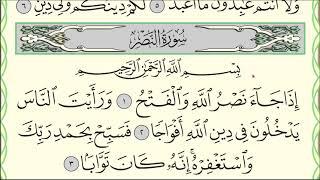 وَلَآ أَنتُمْ عَٰبِدُونَ مَآ أَعْبُدُ ٥ لَكُمْ دِينُكُمْ وَلِيَ دِينِ ٦
سُورَةُ النَّصْرِ
بِسْمِ ٱللَّهِ ٱلرَّحْمَٰنِ ٱلرَّحِيمِ
إِذَا جَآءَ نَصْرُ ٱللَّهِ وَٱلْفَتْحُ ١ وَرَأَيْتَ ٱلنَّاسَ
يَدْخُلُونَ فِي دِينِ ٱللَّهِ أَفْوَاجًا ٢ فَسَبِّحْ بِحَمْدِ رَبِّكَ
وَٱسْتَغْفِرْهُ إِنَّهُۥ كَانَ تَوَّابًۢا ٣